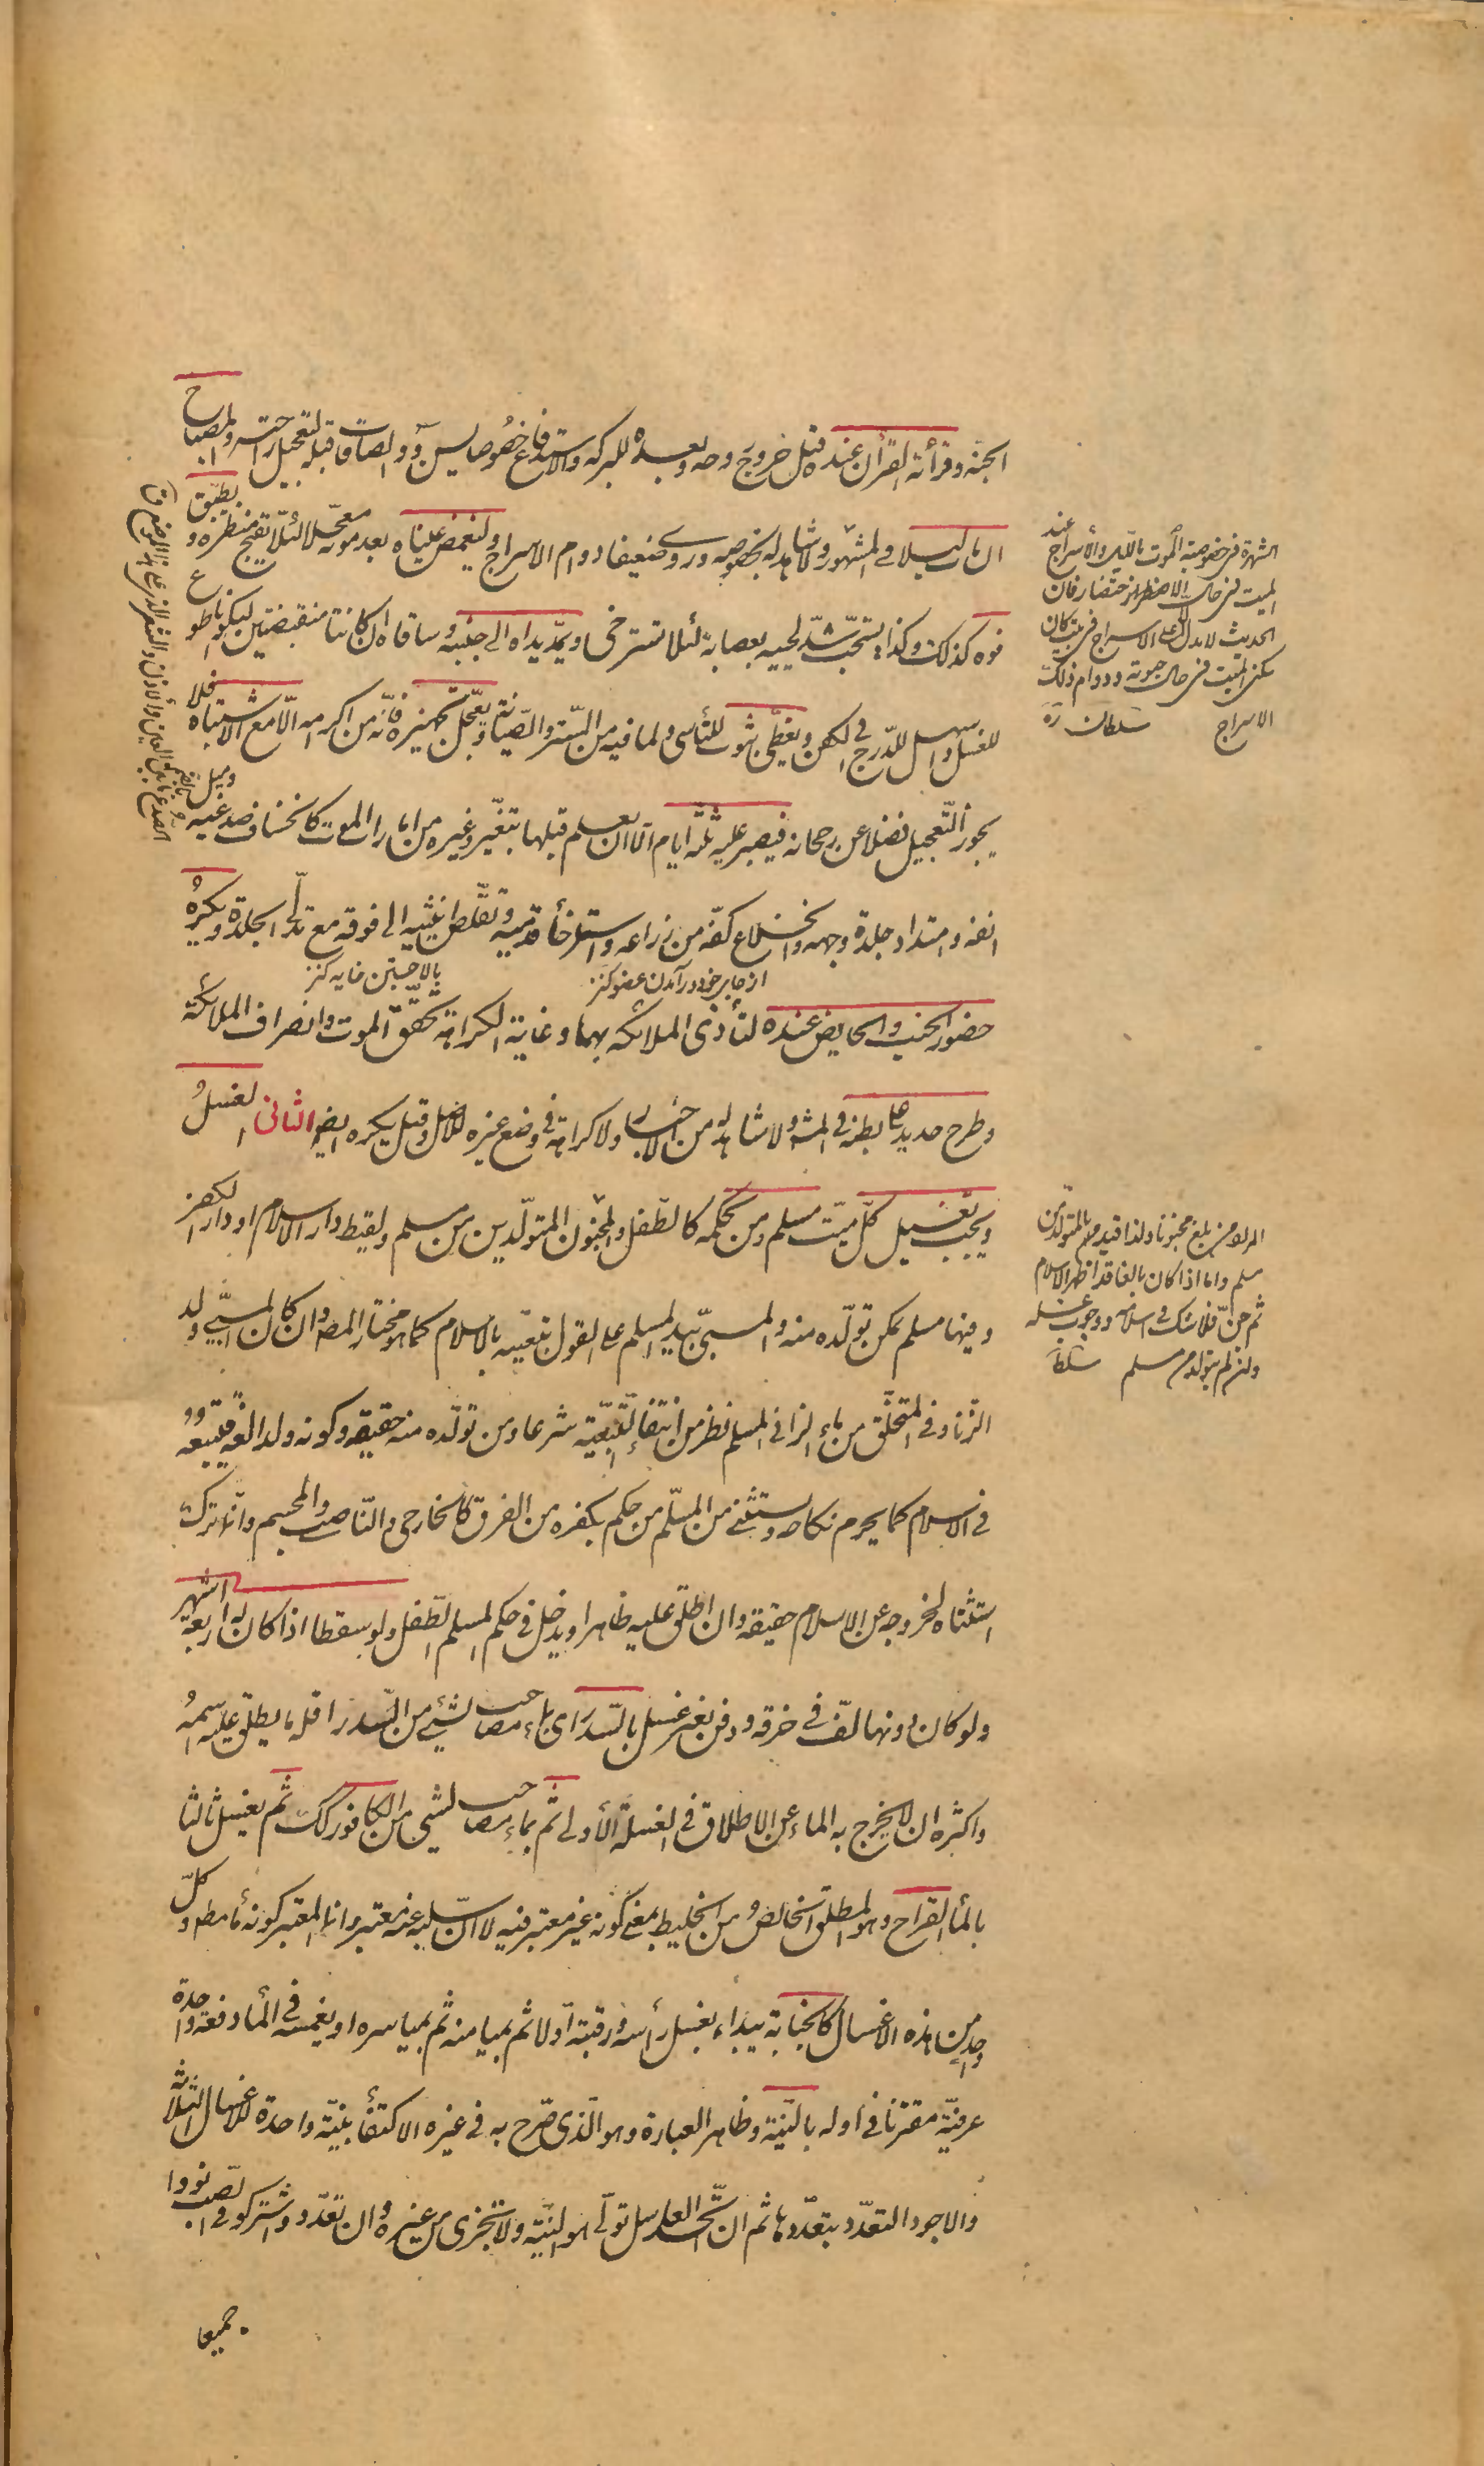 الجنة وقرأئة القرأن عنده قبل خروج روحه وبعده للبركه والاستدفاع خصوصا يس والصافات قبله لتعجيل راحته والمصباح
ان مات ليلا في المشهور ولا شاهد له بخصوصه وروى ضعيفا دوام الاسراج ولتغمض عيناه بعد موته معجلا لئلا يقبح منظره ويطبق
فوه كذلك وكذا يستحب شدّ لحييه بعصابة لئلا تسترخى ويمدّ يداه الى جنبيه وساقاه ان كانتا منقبضتين ليكون اطوع
للغسل واسهل للدرج في الكفن ويغطى بثوب للتأسى ولما فيه من الستر والصيانة ويعجل تجهيزه فانه من اكرامه الّا مع الاشتباه فلا
يجوز التعجيل فضلا عن رجحانه فيصبر عليه ثلثة ايام الا ان يعلم قبلها بتغير وغيره من امارات الموت كانخساف صدغيه وميل
انفه وامتداد جلدة وجهه وانخلاع كفّه من ذراعه واسترخأ قدميه وتقلّص انثييه الى فوقه مع تدلّى الجلدة ويكره
از جاى خود در آمدن عضو كنز
بالا جستن خايه كنز
حضور الجنب والحايض عنده لتأذى الملائكه بهما وغاية الكراهة تحقّق الموت وانصراف الملائكة
وطرح حديد على بطنه في المشهور ولا شاهد له من الاخبار ولا كراهة في وضع غيره للاصل وقيل يكره ايضا الثانى الغسلُ
ويجب تغسيل كلّ ميّت مسلم ومن بحكمه كالطفل والمجنون المتولّدين من مسلم ولقيط دار الاسلام او دار الكفر
وفيها مسلم يمكن تولّده منه والمسبىّ بيد المسلم على القول بتبعيّته بالاسلام كما هو مختار المصه وان كان المسبىّ ولد
الزّنا وفى المتخلّق من ماء الزانى المسلم نظر من انتفأ التّبعيّة شرعا ومن تولّده منه حقيقه وكونه ولدا لغةً فيتبعه
في الاسلام كما يحرم نكاحه ويستثنى من المسلّم من حكم بكفره من الفرق كالخارجى والنّاصب والمجسم وانّما ترك
استثناه لخروجه عن الاسلام حقيقه وان اطلق عليه ظاهرا ويدخل فى حكم المسلم الطّفل ولو سقطا اذا كان له اربعة اشهر
ولو كان دونها لفّ فى خرقه ودفن بغير غسل بالسّدر اى بماء مصاحب لشىء من السّدر اقله ما يطلق عليه اسمهُ
واكثره ان لا يخرج به الماء عن الاطلاق فى الغسلة الأولى ثم بماء مصاحب لشىء من الكافور كك ثم يغسل ثالثا
بالمأ القراح وهو المطلق الخالصُ من الخليط بمعنى كونه غير معتبر فيه لا انّ سلبه عنه معتبر وانما المعتبر كونه مأ مطلقا وكلّ
واحدٍ من هذه الاغسال كالجنابة يبداء بغسل رأسه ورقبته اولا ثم بميامنه ثم بمياسره او يغمسه فى المأ دفعة واحدة
عرفيّة مقترنا فى اوله بالنّية وظاهر العبارة وهو الّذى صرّح به فى غيره الاكتفأ بنيّة واحدة للاغسال الثلاثة
والاجود التعدّد بتعدّدها ثم ان اتّحد الغاسل تولّى هو النيّة ولا تجزى من غيره وان تعدّد واشتركوا فى الصب نووا
جميعا
الشهرة فى خصوصية الموت بالليل والأسراج عند
الميت فى حال الاحتضار فان
الحديث لا يدل على الاسراج فى بيت كان
يسكن الميت فى حال حيوته ودوام ذلك
الاسراج سلطان ره
المراد من بلغ مجنونا ولذا قيده بالمتولد من
مسلم واما اذا كان بالغا قد اظهر الاسلام
ثم جنّ فلا شك فى اسلامه ووجوب غسله
وان لم يتولد من مسلم سلطا
الصدغ بالضم ما بين العين والأذن والشعر المتدلى على هذا الموضع ق